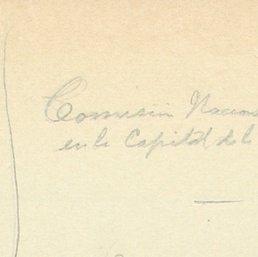 Comisión Nacional
en la Capital de l